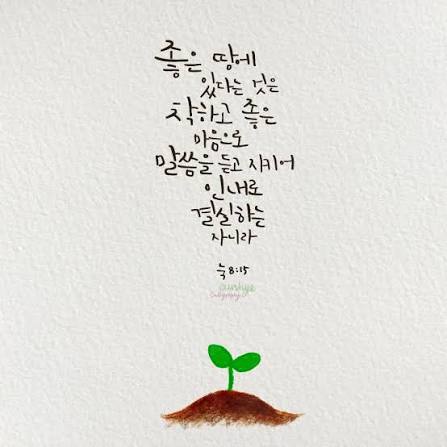 좋은 땅에
있다는 것은
착하고 좋은
마음으로
말씀을 듣고 지키어
인내로
결실하는
자니라
눅 8:15
eunhye
Calligraphy